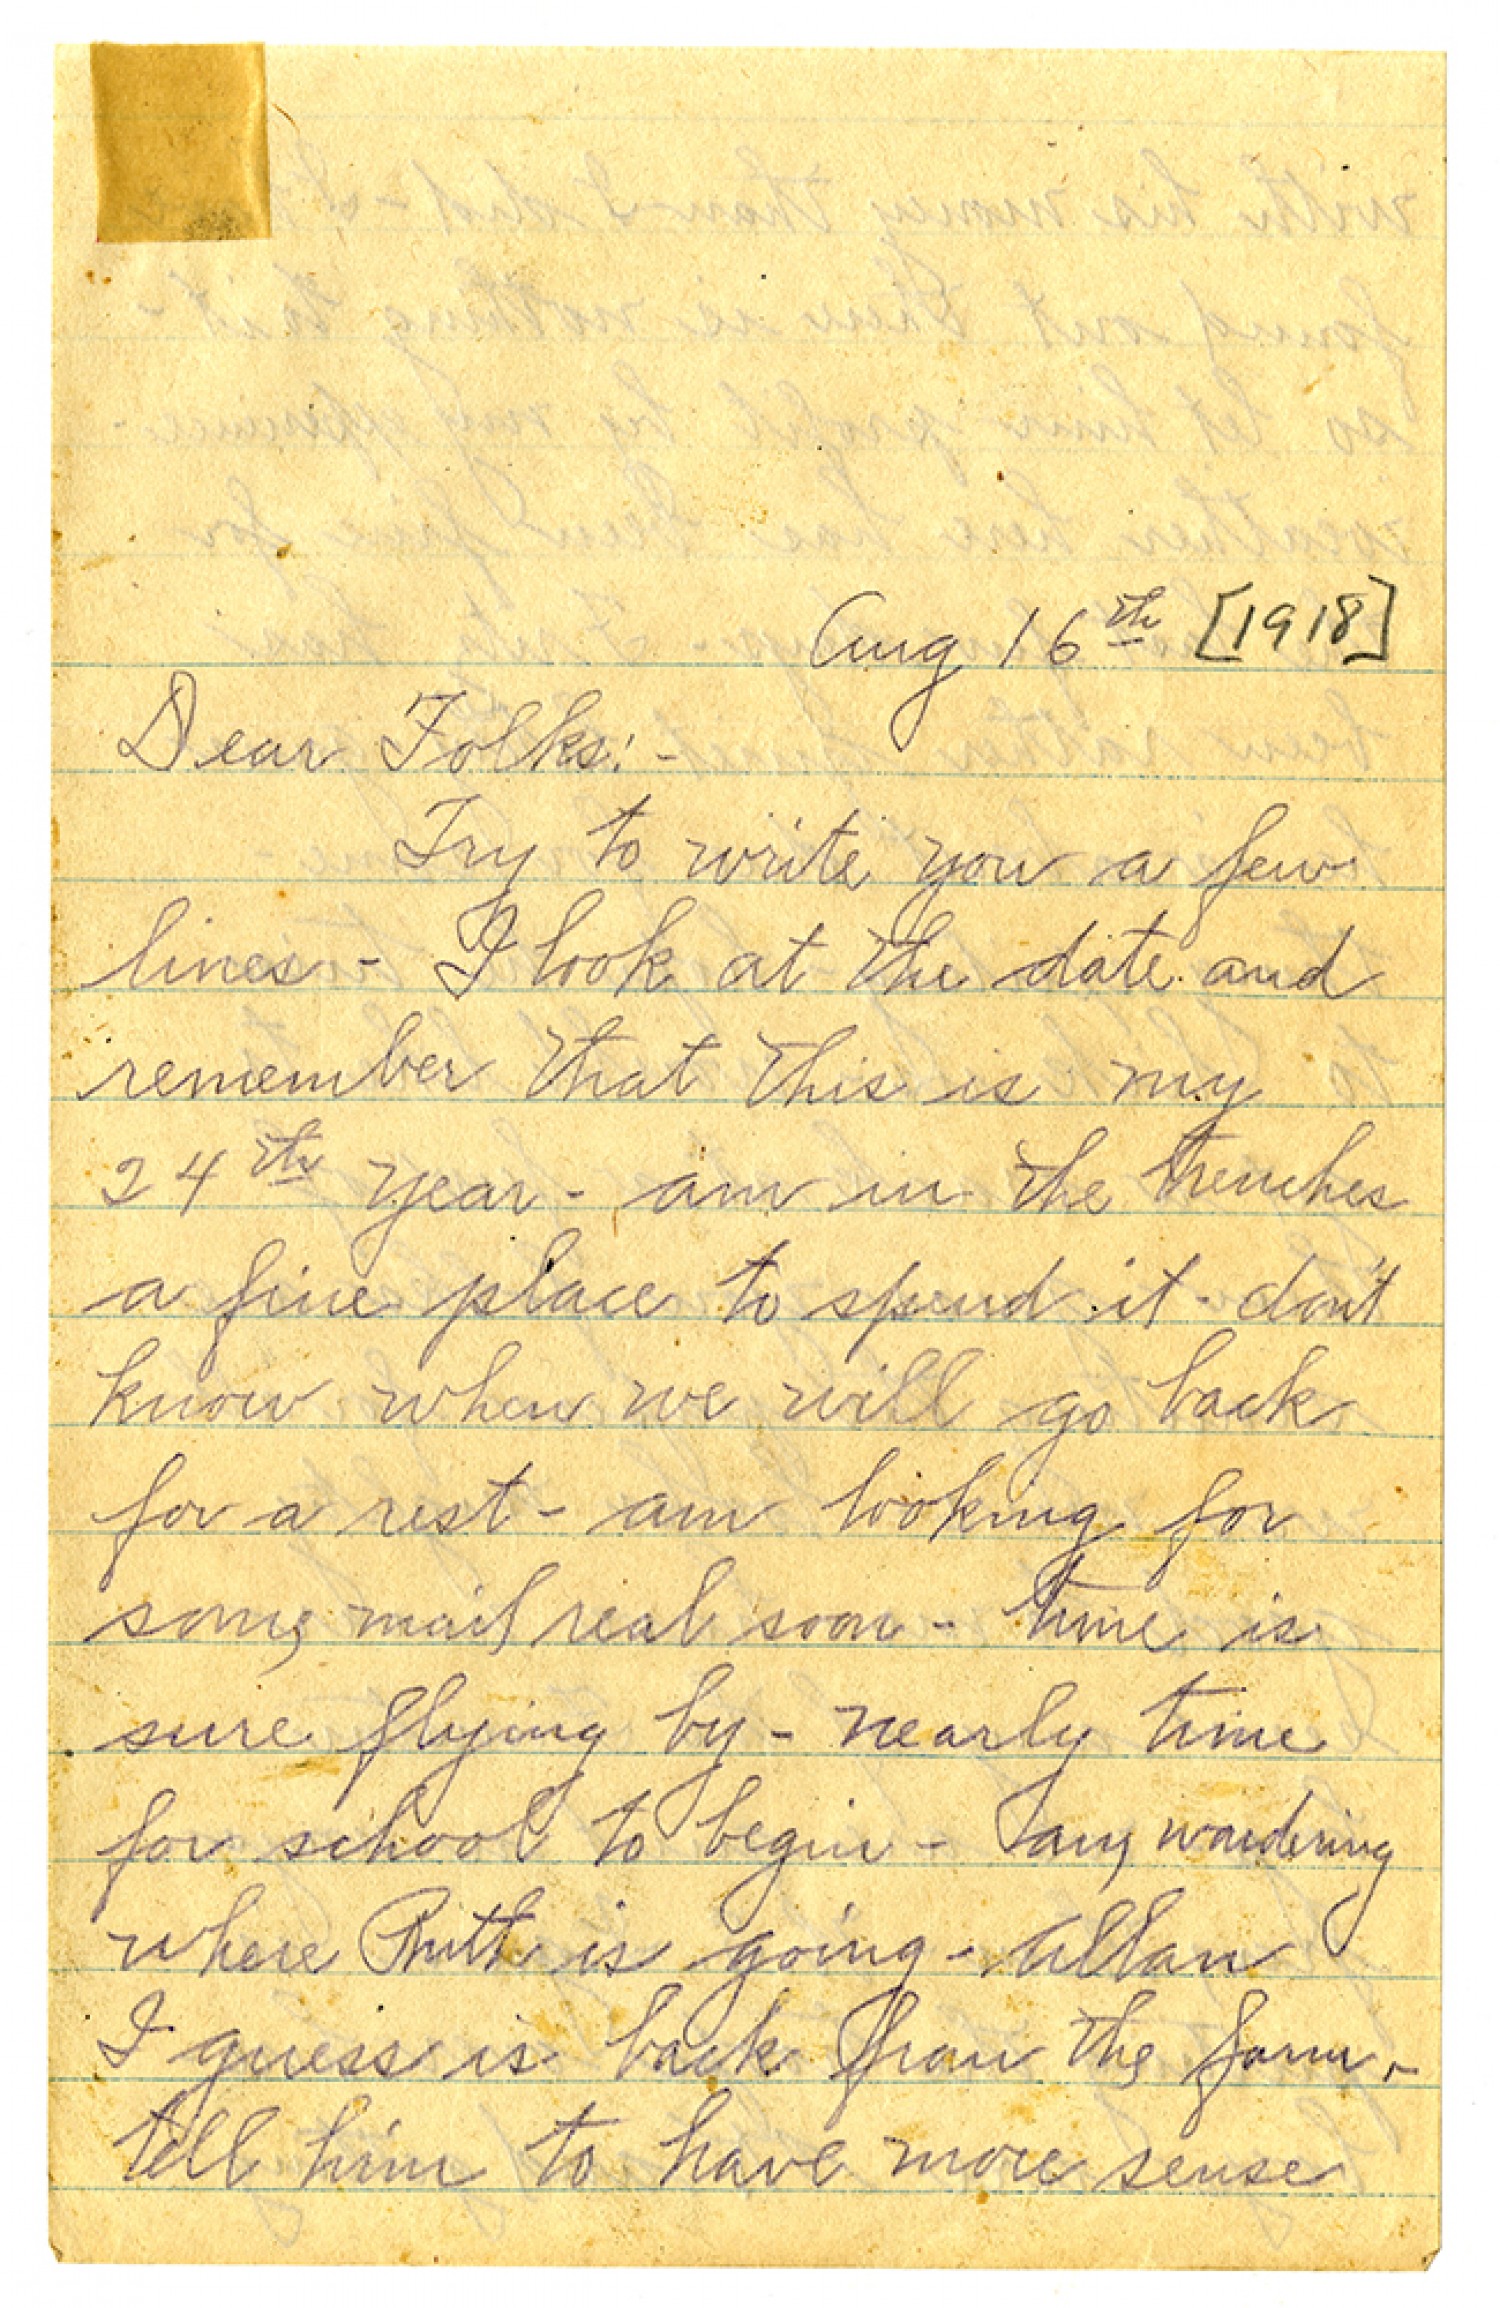 Aug 16th [1918]
Dear Folks:-
Try to write you a few
lines - I look at the date and
remember that this is my
24th year - am in the trenches
a fine place to spend it - don't
know when we will go back
for a rest - am looking for
some mail real soon - time is
sure flying by - nearly time
for school to begin - I am wondering
where Ruth is going - Allan
I guess is back from the farm -
tell him to have more sense